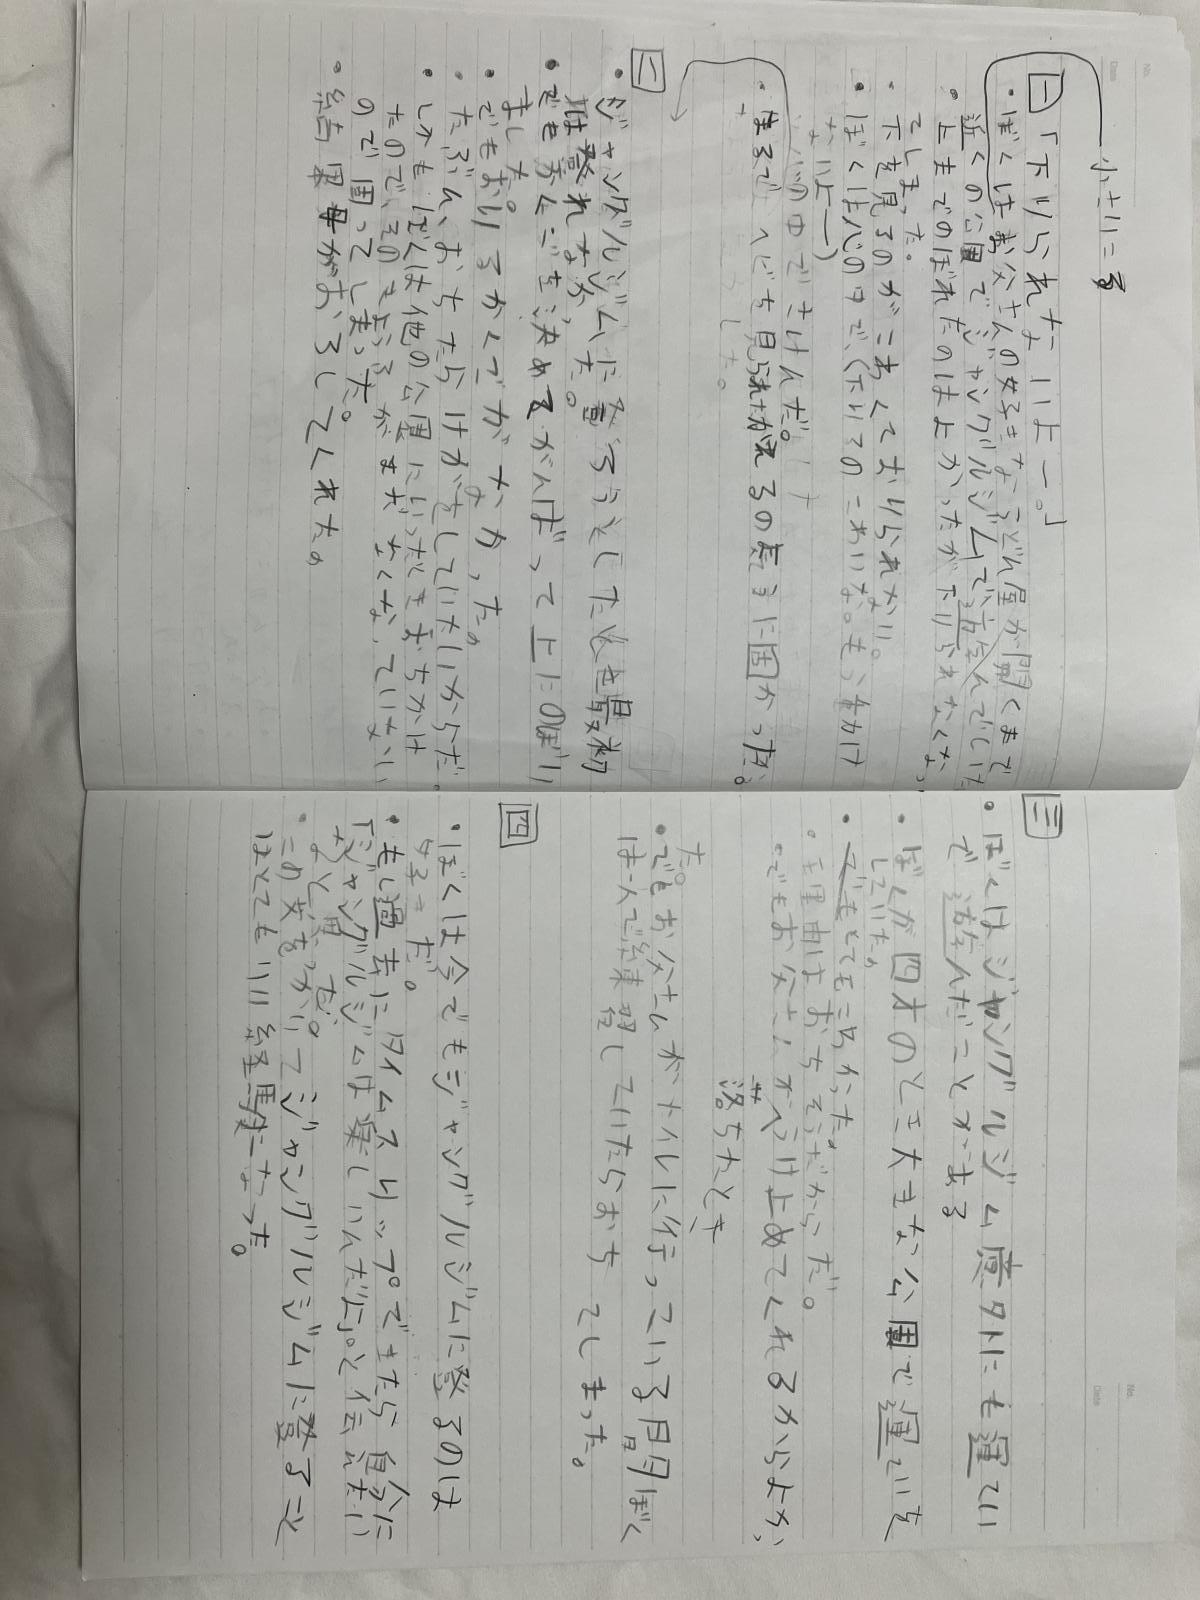 小さい字
一
「下りられないよー。」
・ぼくはお父さんの好きなうどん屋が開くまで
近くの公園でジャングルジムで遊んでいた
・上までのぼれたのはよかったが下りられなくなっ
てしまった。
・下を見るのがこわくておりられない。
・ぼくは心の中で、(下りるのこわいな。もう動け
ないよー)
心の中でさけんだ。
・まるでヘビを見られたかえるの気ように固かった。
二
・ジャングルジムに登ろうとしたとき最初
は登れなかった。
・でも心を決めてがんばって上にのぼり
ました。
・でもおりるかくごがなかった。
・たぶん、おちたらけがをしていたいからだ。
・しかもぼくは他の公園にいったときおちかけ
たので、そのきょうふがまだなくなっていない
ので困ってしまった。
・結果母がおろしてくれた。
三
・ぼくはジャングルジム意外にも運てい
で遊んだことがある
・ぼくが四才のとき大きな公園で運ていを
していた。
・でもとてもこわかった。
・理由はおちそうだからだ。
・でもお父さんがうけ止めてくれるからよかっ
た。
落ちたとき
・でもお父さんがトイレに行っている間ぼく
は一人で練習していたらおちてしまった。
四
・ぼくは今でもジャングルジムに登るのは
好きだ。
・もし過去にタイムスリップできたら自分に
「ジャングルジムは楽しいんだよ。と伝えたい
なと思った。
・この文をつかいてジャングルジムに登ること
はとてもいい経験になった。